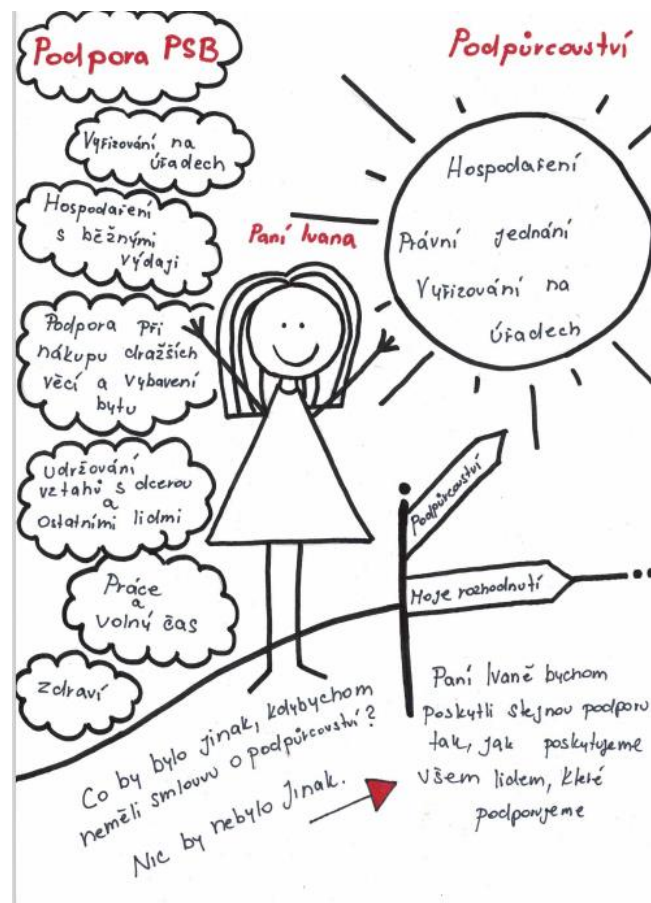 Podpora PSB
Vyřizování na
úřadech
Hospodaření
s běžnými
výdaji
Podpora při
nákupu dražších
věcí a vybavení
bytu
Udržování
vztahů s dcerou
a
ostatními lidmi
Práce
a
volný čas
Zdraví
Paní Ivana
Podpůrcovství
Hospodaření
Právní jednání
Vyřizování na
úřadech
Podpůrcovství
Moje rozhodnutí
Co by bylo jinak, kdybychom
neměli smlouvu o podpůrcovství?
Nic by nebylo jinak.
Paní Ivaně bychom
poskytli stejnou podporu
tak, jak poskytujeme
všem lidem, které
podporujeme